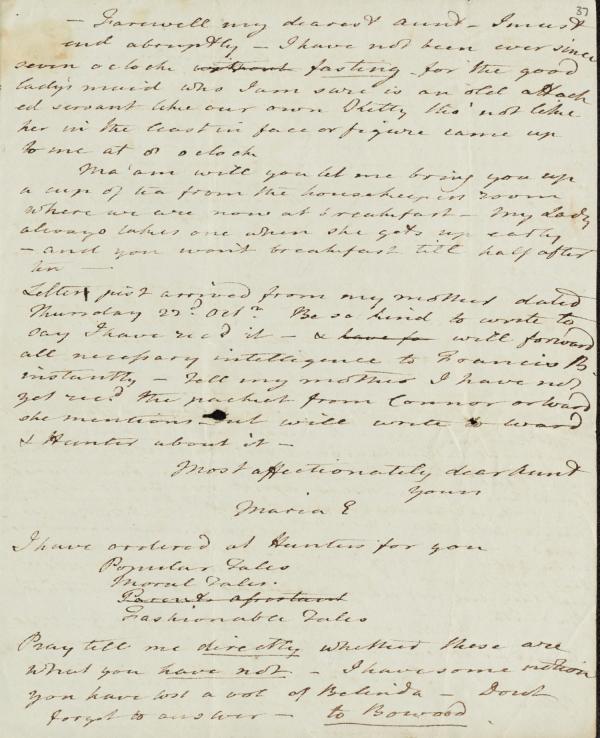 37
— Farewell my dearest aunt — I must
end abruptly — I have not been ever since
seven o clock without fasting for the good
lady's maid who I am sure is an old attach
ed servant like our own Kitty tho' not like
her in the least in face or figure came up
to me at 8 o clock
Ma'am will you let me bring you up
a cup of tea from the housekeepers room
where we are now at breakfast — My Lady
always takes one when she gets up early
— and you won't breakfast till half after
ten —
Letter just arrived from my mother dated
Thursday 22d. Octr. Be so kind to write to
say I have recd it — & have fo will forward
all necessary intelligence to Francis B—
instantly — Tell my mother I have not
yet recd. the packet from Connor or Ward
she mentions — but will write to Ward
& Hunter about it —
Most affectionately dear Aunt
Yours
Maria E
I have ordered at Hunters for you
Popular Tales
Moral Tales.
Parents assistant
Fashionable Tales
Pray tell me directly whether these are
what you have not — I have some notion
you have lost a vol of Belinda — Dont
forget to answer — to Bowood